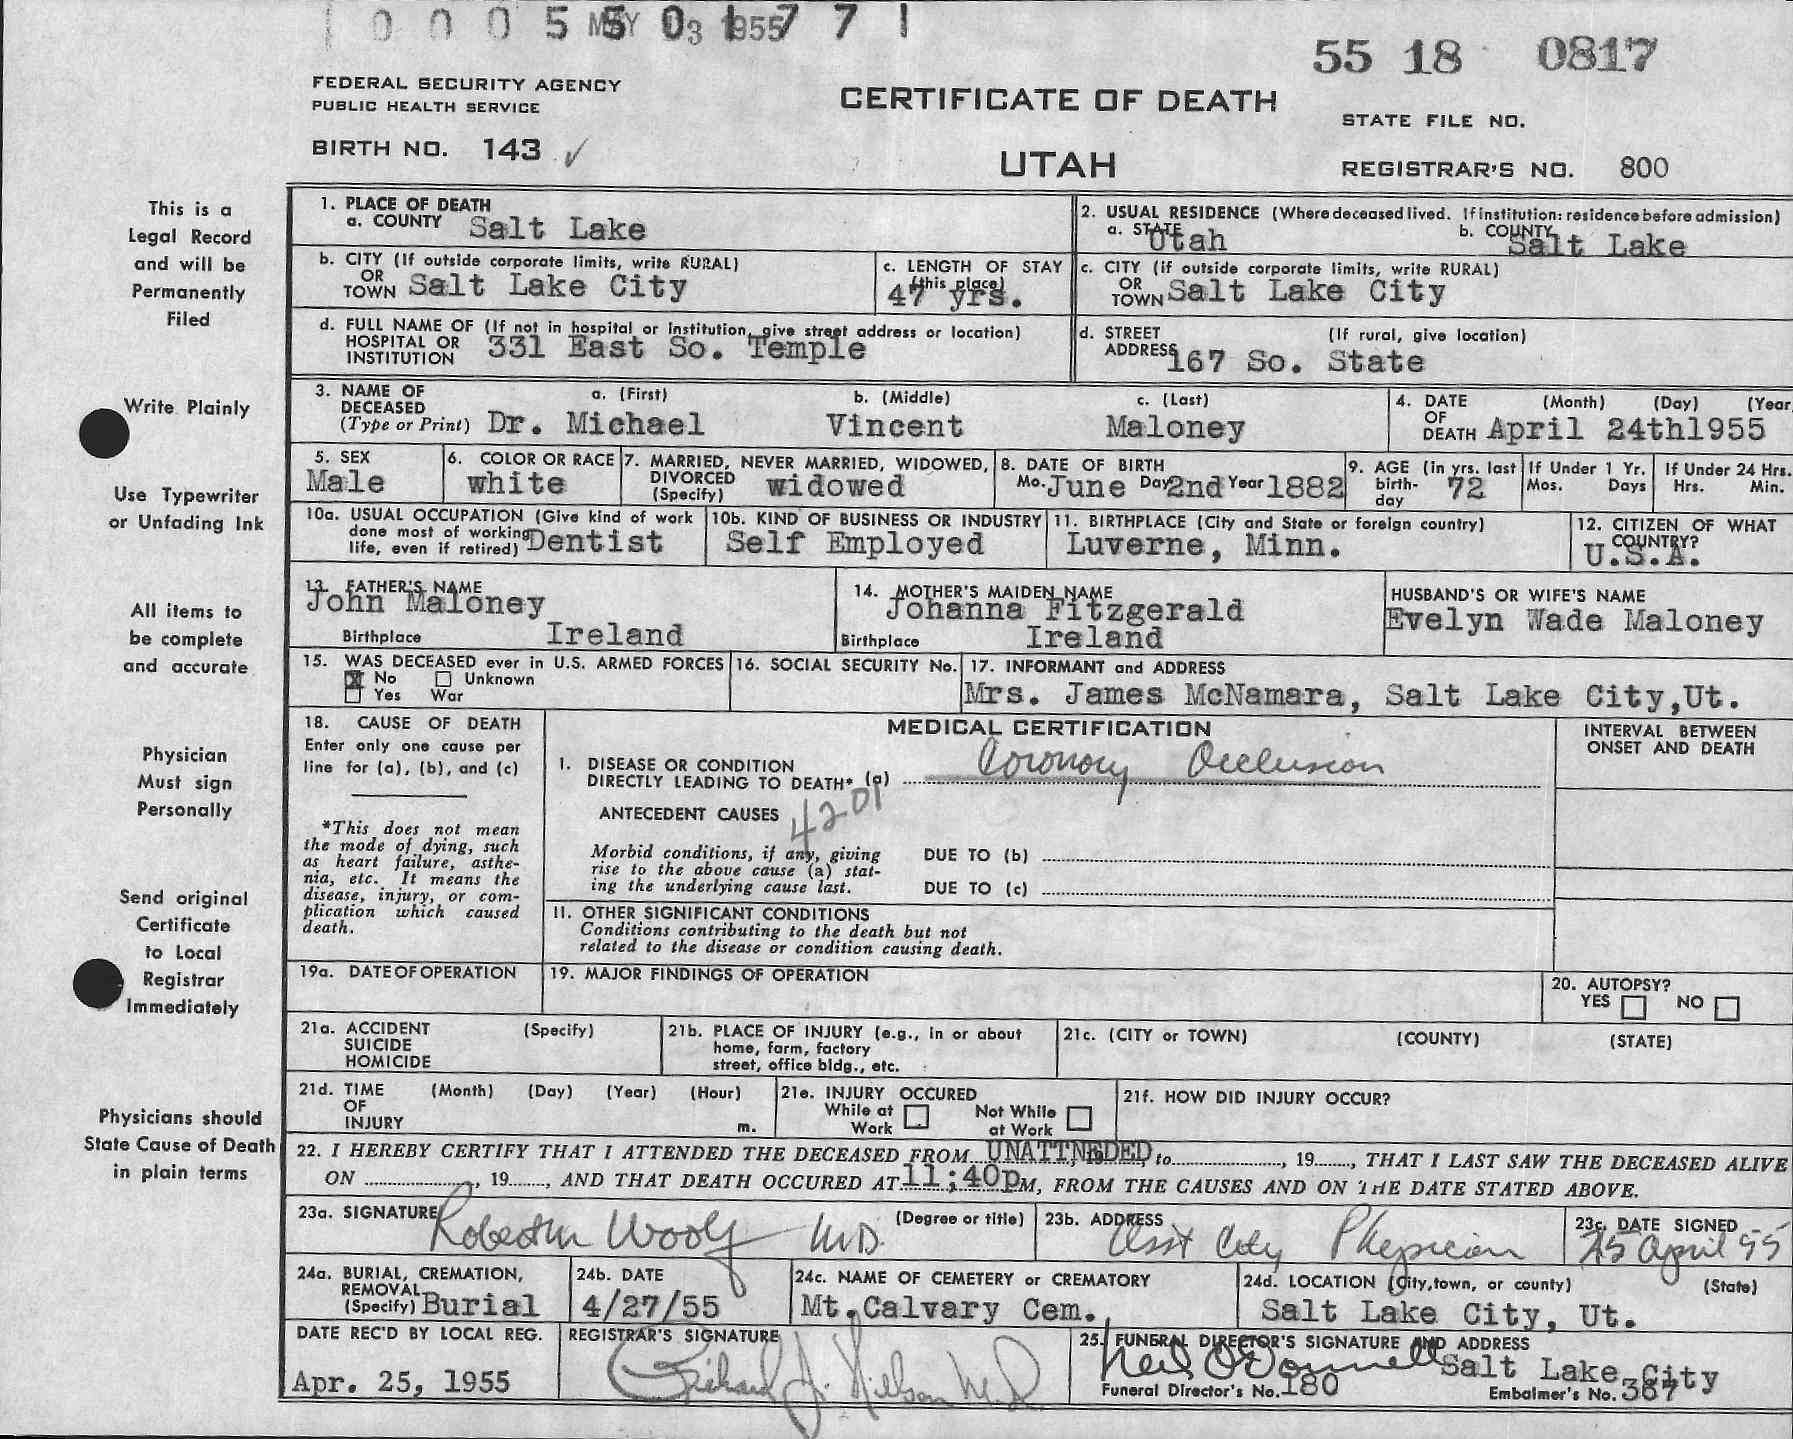 1 0 0 0 5 5 0 1 7 7 1
MAY 03 1955
55 18 0817
FEDERAL SECURITY AGENCY
PUBLIC HEALTH SERVICE
CERTIFICATE OF DEATH
STATE FILE NO.
BIRTH NO. 143 ✓
UTAH
REGISTRAR'S NO. 800
This is a
Legal Record
and will be
Permanently
Filed
Write Plainly
Use Typewriter
or Unfading Ink
All items to
be complete
and accurate
Physician
Must sign
Personally
Send original
Certificate
to Local
Registrar
Immediately
Physicians should
State Cause of Death
in plain terms
1. PLACE OF DEATH
a. COUNTY Salt Lake
2. USUAL RESIDENCE (Where deceased lived. If institution: residence before admission)
a. STATE Utah b. COUNTY Salt Lake
b. CITY (If outside corporate limits, write RURAL)
OR
TOWN Salt Lake City
c. LENGTH OF STAY
(this place)
47 yrs.
c. CITY (if outside corporate limits, write RURAL)
OR
TOWN Salt Lake City
d. FULL NAME OF (If not in hospital or institution, give street address or location)
HOSPITAL OR
INSTITUTION 331 East So. Temple
d. STREET (If rural, give location)
ADDRESS 167 So. State
3. NAME OF a. (First) b. (Middle) c. (Last)
DECEASED
(Type or Print) Dr. Michael Vincent Maloney
4. DATE (Month) (Day) (Year
OF
DEATH April 24th1955
5. SEX
Male
6. COLOR OR RACE
white
7. MARRIED, NEVER MARRIED, WIDOWED,
DIVORCED
(Specify) widowed
8. DATE OF BIRTH
Mo. June Day 2nd Year 1882
9. AGE (in yrs. last
birth-
day 72
If Under 1 Yr.
Mos. Days
If Under 24 Hrs.
Hrs. Min.
10a. USUAL OCCUPATION (Give kind of work
done most of working
life, even if retired) Dentist
10b. KIND OF BUSINESS OR INDUSTRY
Self Employed
11. BIRTHPLACE (City and State or foreign country)
Luverne, Minn.
12. CITIZEN OF WHAT
COUNTRY?
U.S.A.
13. FATHER'S NAME
John Maloney
Birthplace Ireland
14. MOTHER'S MAIDEN NAME
Johanna Fitzgerald
Birthplace Ireland
HUSBAND'S OR WIFE'S NAME
Evelyn Wade Maloney
15. WAS DECEASED ever in U.S. ARMED FORCES
x No Unknown
Yes War
16. SOCIAL SECURITY No.
17. INFORMANT and ADDRESS
Mrs. James McNamara, Salt Lake City,Ut.
18. CAUSE OF DEATH
Enter only one cause per
line for (a), (b), and (c)
*This does not mean
the mode of dying, such
as heart failure, asthe-
nia, etc. It means the
disease, injury, or com-
plication which caused
death.
MEDICAL CERTIFICATION
I. DISEASE OR CONDITION
DIRECTLY LEADING TO DEATH* (a) Coronary Occlusion
ANTECEDENT CAUSES 4201
Morbid conditions, if any, giving
rise to the above cause (a) stat-
ing the underlying cause last.
DUE TO (b)
DUE TO (c)
INTERVAL BETWEEN
ONSET AND DEATH
II. OTHER SIGNIFICANT CONDITIONS
Conditions contributing to the death but not
related to the disease or condition causing death.
19a. DATE OF OPERATION
19. MAJOR FINDINGS OF OPERATION
20. AUTOPSY?
YES NO
21a. ACCIDENT (Specify)
SUICIDE
HOMICIDE
21b. PLACE OF INJURY (e.g., in or about
home, farm, factory
street, office bldg., etc.
21c. (CITY or TOWN) (COUNTY) (STATE)
21d. TIME (Month) (Day) (Year) (Hour)
OF
INJURY m.
21e. INJURY OCCURED
While at Work Not While at Work
21f. HOW DID INJURY OCCUR?
22. I HEREBY CERTIFY THAT I ATTENDED THE DECEASED FROM UNATTNEDED, to , 19 , THAT I LAST SAW THE DECEASED ALIVE
ON , 19 , AND THAT DEATH OCCURED AT 11;40pM, FROM THE CAUSES AND ON THE DATE STATED ABOVE.
23a. SIGNATURE (Degree or title)
Woolf M.D.
23b. ADDRESS
Asst City Physician
23c. DATE SIGNED
25 April 55
24a. BURIAL, CREMATION,
REMOVAL
(Specify) Burial
24b. DATE
4/27/55
24c. NAME OF CEMETERY or CREMATORY
Mt.Calvary Cem.
24d. LOCATION (City,town, or county) (State)
Salt Lake City, Ut.
DATE REC'D BY LOCAL REG.
Apr. 25, 1955
REGISTRAR'S SIGNATURE
Richard J. Nielsen M.D.
25. FUNERAL DIRECTOR'S SIGNATURE AND ADDRESS
Neil O'Donnell Salt Lake City
Funeral Director's No. 180 Embalmer's No. 367